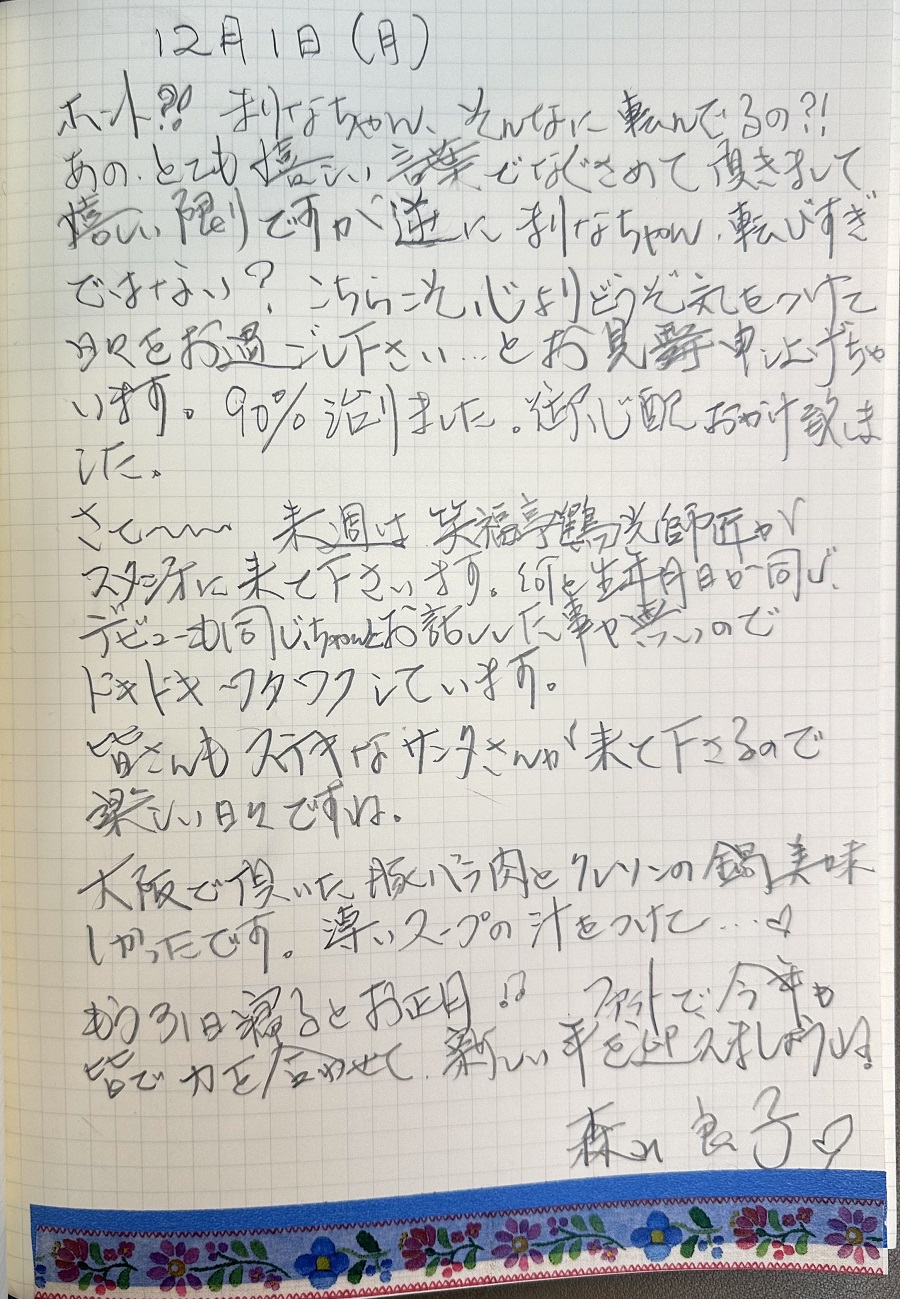 12月1日(月)
ホント?! まりなちゃん、そんなに転んでるの?!
あの、とても嬉しい言葉でなぐさめて頂きまして
嬉しい限りですが逆にまりなちゃん、転びすぎ
ではない? こちらこそ、心よりどうぞ気をつけて
日々をお過ごし下さい…とお見舞申し上げちゃ
います。90%治りました。御心配おかけ致しま
した。
さて〜〜 来週は笑福亭鶴光師匠が
スタジオに来て下さいます。何と生年月日が同じ、
デビューも同じ、ちゃんとお話しした事が無いので
ドキドキワクワクしています。
皆さんもステキなサンタさんが来て下さるので
楽しい日々ですね。
大阪で頂いた豚バラ肉とクレソンの鍋美味
しかったです。薄いスープの汁をつけて…♡
もう31日寝るとお正月!! ファイトで今年も
皆で力を合わせて、新しい年を迎えましょうね!
森山良子♡